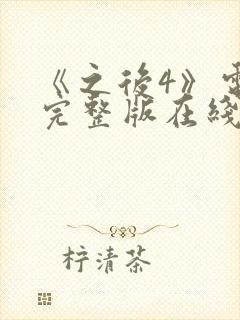 《之後4》
完整版在綫
柠清茶